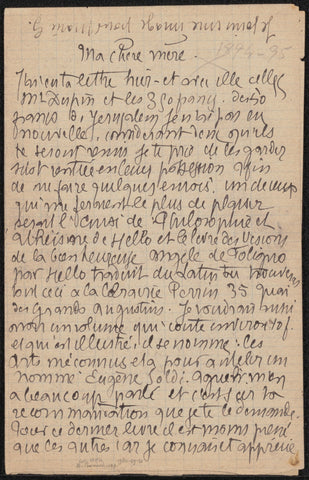 Ma chère mère
1894-95
J'ai eu ta lettre hier et avec elle celles
Mr Dupin et les 3 Gopany. des 50
francs de Jerusalem je n'ai pas eu
nouvelle, considérant donc qu'ils
te seront venus je te prie de les garder
sitôt rentrée en leur possession afin
de me faire quelques envois. un de ceux
qui me feraient le plus de plaisir
serait l'envoi de Philosophie et
athéisme de Hello et le livre des Visions
de la bienheureuse angèle de Foligno
par Hello traduit du latin tu trouveras
tout ceci a la librairie Perrin 35 quai
des Grands augustins. Je voudrais aussi
avoir un volume qui coute environ
et qui est illustré. il se nomme: les
arts méconnus et a pour auteur un
nommé Eugène Soldi. m'en
a beaucoup parlé et c'est sur sa
recommandation que je te le demande.
Pour ce dernier livre il est moins pressé
que les autres car je connais et apprécie